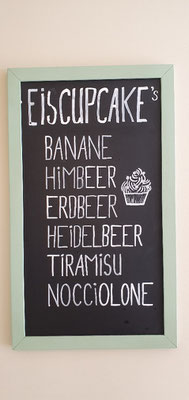 EiSCUPCAKE's
BANANE
HiMBEER
ERDBEER
HEiDELBEER
TiRAMiSU
NOCCiOLONE